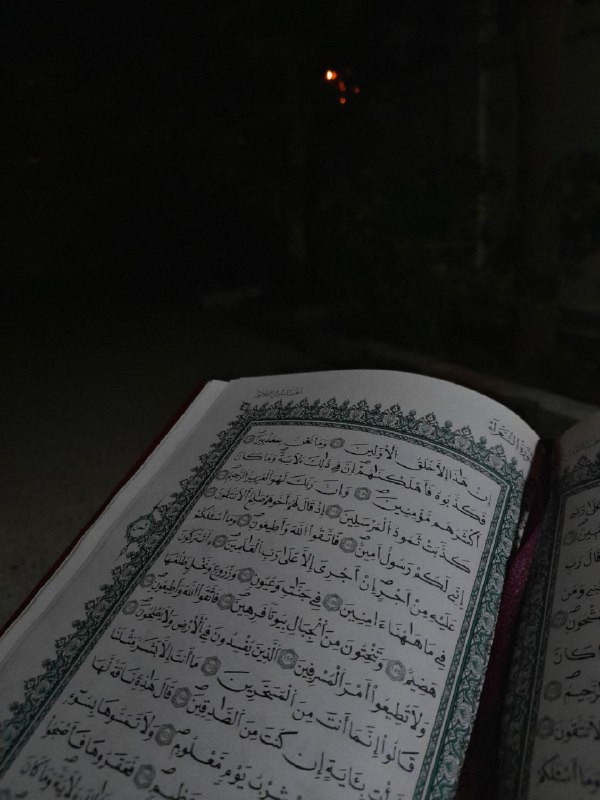 سُورَةُ الشُّعَرَاءِ
إِنْ هَٰذَآ إِلَّا خُلُقُ ٱلْأَوَّلِينَ وَمَا نَحْنُ بِمُعَذَّبِينَ
فَكَذَّبُوهُ فَأَهْلَكْنَٰهُمْ إِنَّ فِى ذَٰلِكَ لَءَايَةً وَمَا كَانَ
أَكْثَرُهُم مُّؤْمِنِينَ وَإِنَّ رَبَّكَ لَهُوَ ٱلْعَزِيزُ ٱلرَّحِيمُ
كَذَّبَتْ ثَمُودُ ٱلْمُرْسَلِينَ إِذْ قَالَ لَهُمْ أَخُوهُمْ صَٰلِحٌ أَلَا تَتَّقُونَ
إِنِّى لَكُمْ رَسُولٌ أَمِينٌ فَٱتَّقُوا۟ ٱللَّهَ وَأَطِيعُونِ وَمَآ أَسْـَٔلُكُمْ
عَلَيْهِ مِنْ أَجْرٍ إِنْ أَجْرِىَ إِلَّا عَلَىٰ رَبِّ ٱلْعَٰلَمِينَ أَتُتْرَكُونَ
فِى مَا هَٰهُنَآ ءَامِنِينَ فِى جَنَّٰتٍ وَعُيُونٍ وَزُرُوعٍ وَنَخْلٍ طَلْعُهَا
هَضِيمٌ وَتَنْحِتُونَ مِنَ ٱلْجِبَالِ بُيُوتًا فَٰرِهِينَ فَٱتَّقُوا۟ ٱللَّهَ وَأَطِيعُونِ
وَلَا تُطِيعُوٓا۟ أَمْرَ ٱلْمُسْرِفِينَ ٱلَّذِينَ يُفْسِدُونَ فِى ٱلْأَرْضِ وَلَا يُصْلِحُونَ
قَالُوٓا۟ إِنَّمَآ أَنتَ مِنَ ٱلْمُسَحَّرِينَ مَآ أَنتَ إِلَّا بَشَرٌ مِّثْلُنَا
فَأْتِ بِـَٔايَةٍ إِن كُنتَ مِنَ ٱلصَّٰدِقِينَ قَالَ هَٰذِهِۦ نَاقَةٌ لَّهَا
شِرْبُ يَوْمٍ مَّعْلُومٍ وَلَا تَمَسُّوهَا بِسُوٓءٍ
عَظِيمٍ فَعَقَرُوهَا فَأَصْبَحُوا۟
لَءَايَةً وَمَا كَانَ
قَالَ رَبِّ